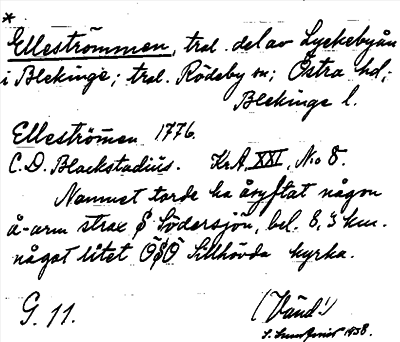 *
Elleströmmen, trol. del av Lyckebyån
i Blekinge; trol. Rödeby sn; Östra hd;
Blekinge l.
Elleströmen 1776.
C. D. Blackstadius. KrA XXI, N:o 8.
Namnet torde ha åsyftat någon
å-arm strax S Södersjön, bel. 8,3 km.
något litet ÖSÖ Sillhövda kyrka.
G. 11.
(Vänd!)
1938.